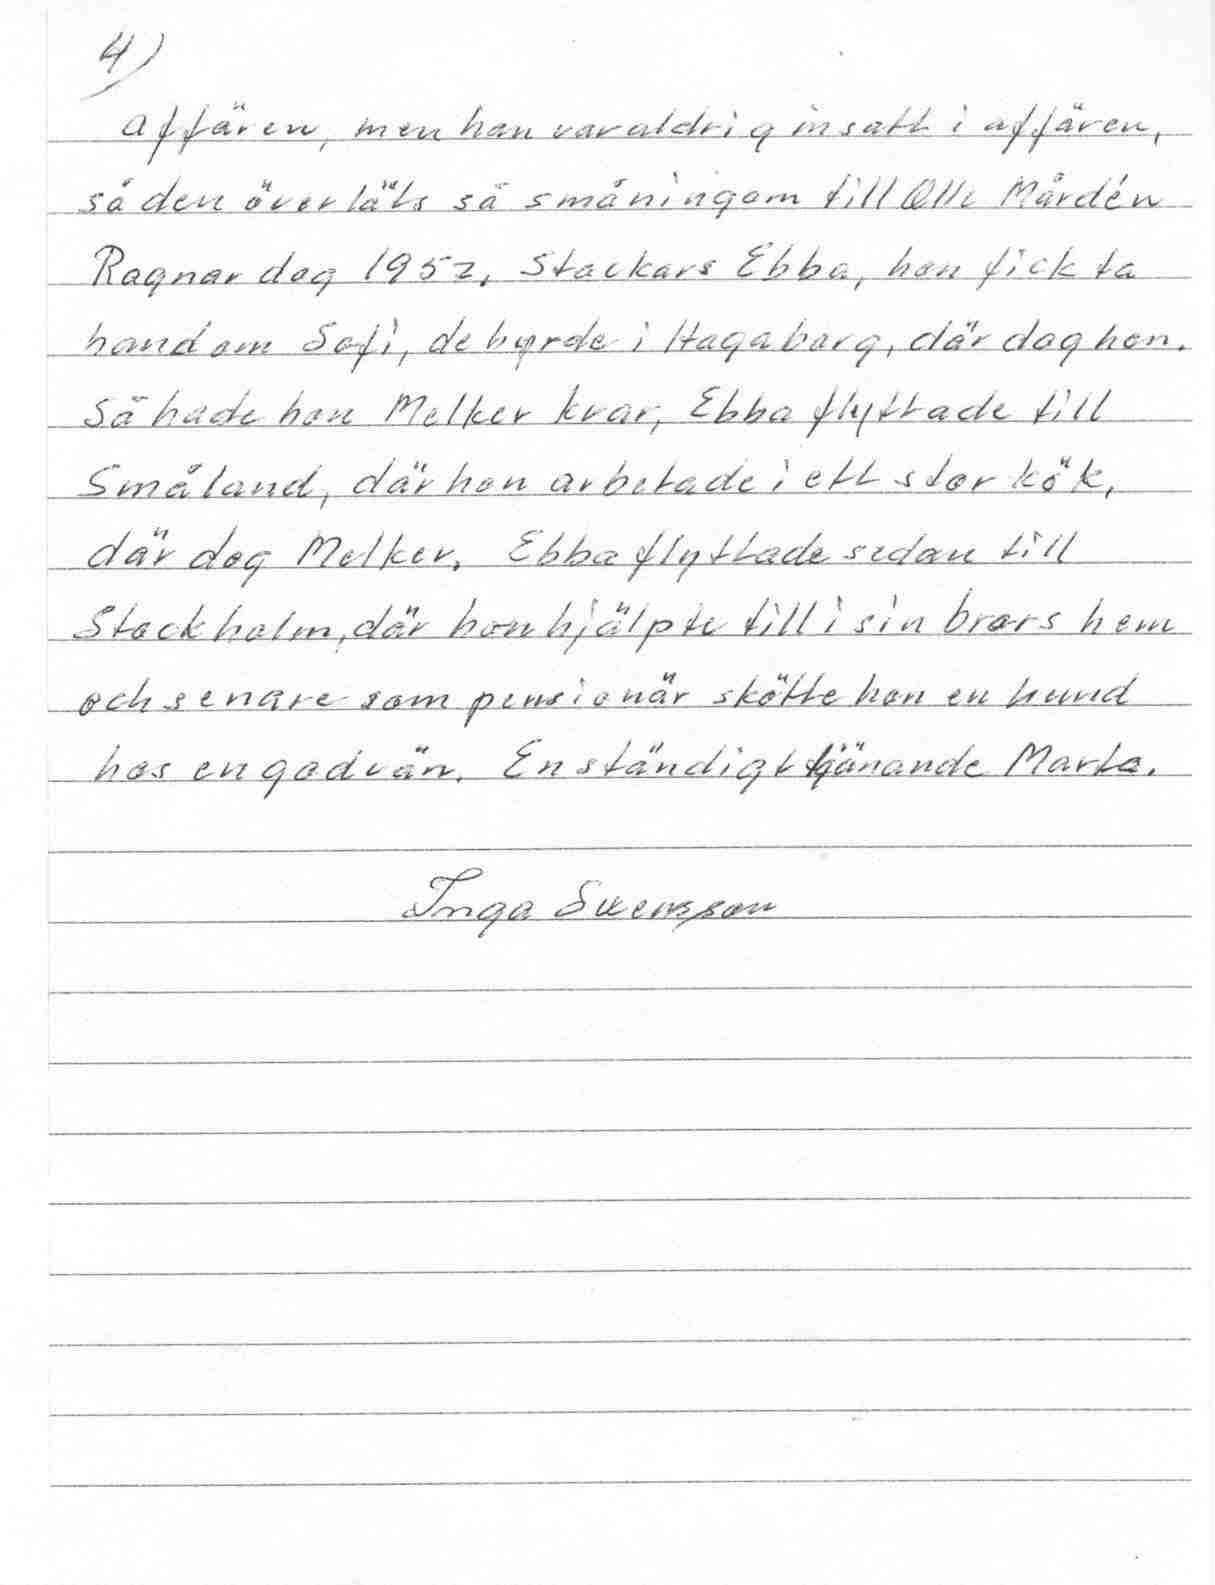 4)
affären, men han var aldrig insatt i affären,
så den överläts så småningom till Olle Mårdén
Ragnar dog 1952, Stackars Ebba, hon fick ta
hand om Sofi, de hyrde i Hagaborg, där dog hon.
Så hade hon Melker kvar, Ebba flyttade till
Småland, där hon arbetade i ett stor kök,
där dog Melker. Ebba flyttade sedan till
Stockholm, där hon hjälpte till i sin brors hem
och senare som pensionär skötte hon en hund
hos en god vän. En ständigt tjänande Marta.
Inga Svensson